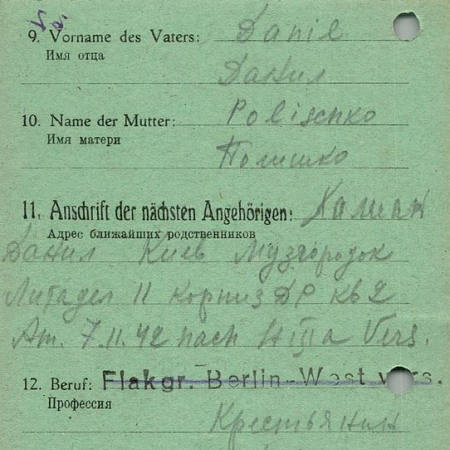 9. Vorname des Vaters: Danil
Имя отца
Данил
10. Name der Mutter: Polischko
Имя матери
Полишко
11. Anschrift der nächsten Angehörigen:
Адрес ближайших родственников
Данил Киев Музгородок
II корпиз ДР кв 2
Am. 7.11.42 nach Vers.
12. Beruf: Flakgr. Berlin-West vers.
Профессия
Крестьянин